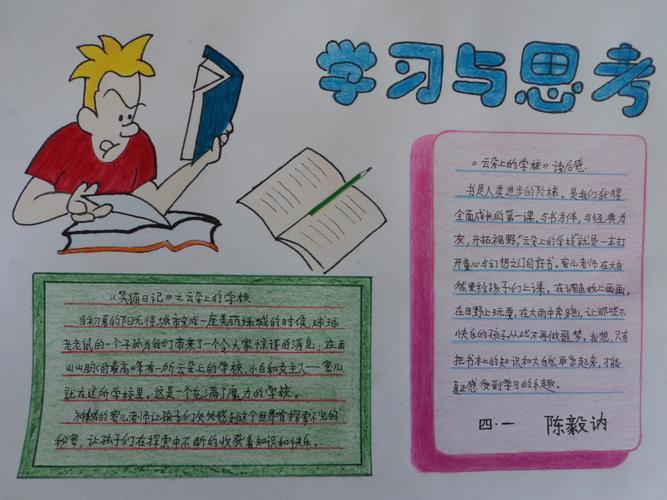 学习与思考
《笑猫日记》之云朵上的学校
当初夏的阳光将城市变成一座美丽绿城的时候，球球
老老鼠的一个子孙为我们带来了一个令人震惊的消息：在西
山山脉的最高峰有一所云朵上的学校，小白和女主人——蜜儿
就在这所学校里。这是一个充满了魔力的学校。
神秘的蜜儿老师让孩子们处处感到这个世界有探索不完的
秘密，让孩子们在探索中不断的收获着知识和快乐。
《云朵上的学校》读后感
书是人类进步的阶梯，是我们获得
全面成长的第一课，与书为伴，与经典为
友，开拓视野。"云朵上的学校"就是一本打
开童心与幻想之门的好书。蜜儿老师在大自
然里给孩子们上课，在调色板上画画，
在田野上玩耍，在大雨中奔跑，让那些不
快乐的孩子从此不再做噩梦。我想，只有
把书本上的知识和大自然联系起来，才能
真正感受到学习的乐趣。
四·一 陈毅讷